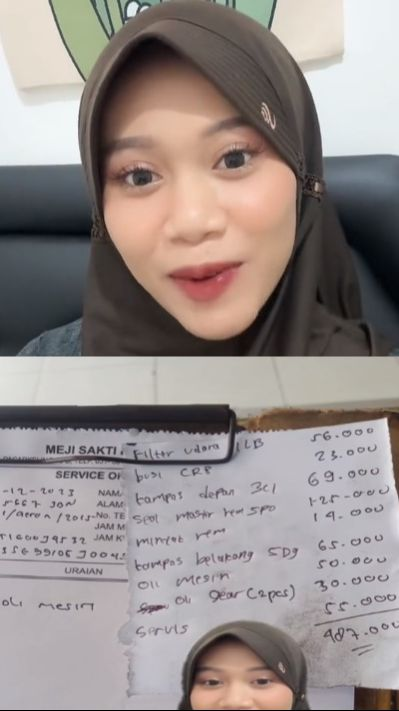 MEJI SAKTI
SERVICE O
-12-2023 NAM
ALAM
/2015 No. TE
JAM M
JAM K
URAIAN
oli mesin
Filter udara ILB 56.000
busi CR8 23.000
kampas depan 3C1 69.000
seal master rem 5PO 125.000
minyak rem 14.000
kampas belakang 5D9 65.000
oli mesin 50.000
oli gear (2pcs) 30.000
servis 55.000
487.000